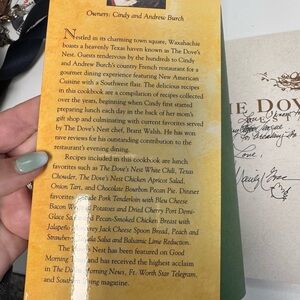 Owners: Cindy and Andrew Burch
Nestled in its charming town square, Waxahachie
boasts a heavenly Texas haven known as The Dove's
Nest. Guests rendezvous by the hundreds to Cindy
and Andrew Burch's country French restaurant for a
gourmet dining experience featuring New American
Cuisine with a Southwest flair. The delicious recipes
in this cookbook are a compilation of recipes collected
over the years, beginning when Cindy first started
preparing lunch each day in the back of her mom's
gift shop and culminating with current favorites served
by The Dove's Nest chef, Brant Walsh. He has won
rave reviews for his outstanding contribution to the
restaurant's evening dining.
Recipes included in this cookbook are lunch
favorites such as The Dove's Nest White Chili, Texas
Chowder, The Dove's Nest Chicken Apricot Salad,
Onion Tart, and Chocolate Bourbon Pecan Pie. Dinner
favorites include Pork Tenderloin with Bleu Cheese
Bacon Potatoes and Dried Cherry Port Demi-
Glace Pecan-Smoked Chicken Breast with
Jalapeño Jack Cheese Spoon Bread, Peach and
Strawberry Salsa and Balsamic Lime Reduction.
The Nest has been featured on Good
Morning and has received the highest acclaim
in The Morning News, Ft. Worth Star Telegram,
and magazine.
HE DOVE
Love,